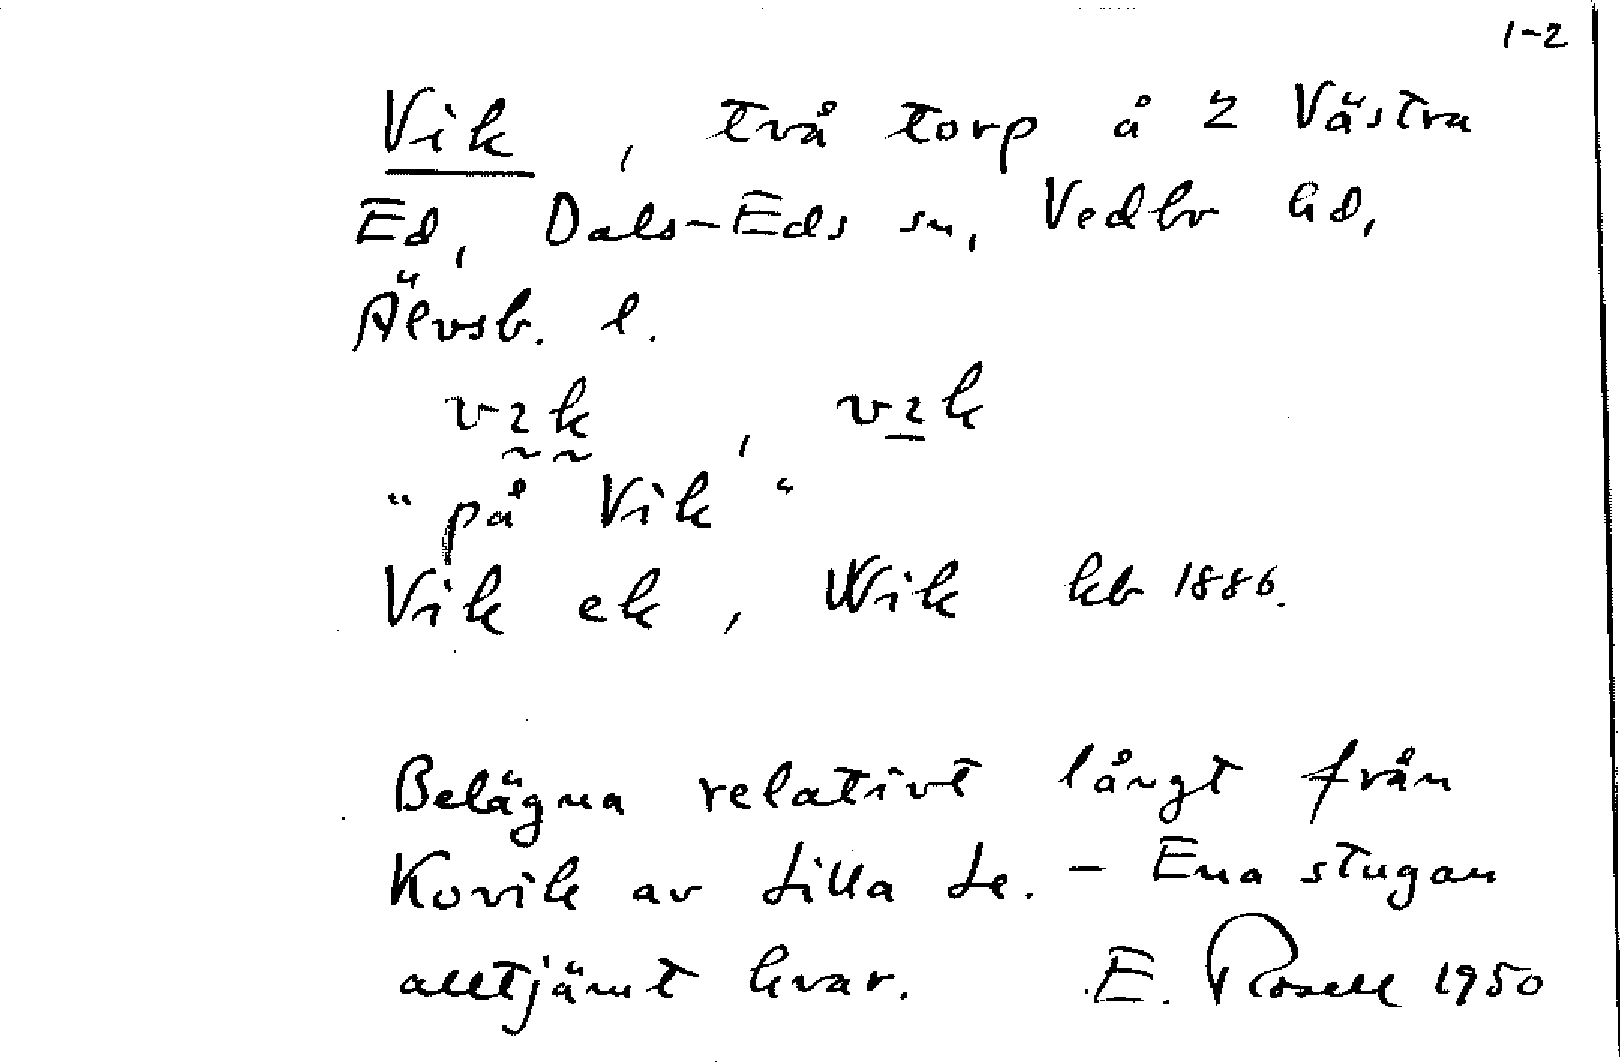 1-2
Vik, två torp å 2 Västra
Ed, Dals-Eds sn, Vedbo hd,
Älvsb. l.
vɩk, vɩk
"på Vik"
Vik ek, Wik kb 1886.
Belägna relativt långt från
Kovik av Lilla Le. - Ena stugan
alltjämt kvar. E. Rosell 1950